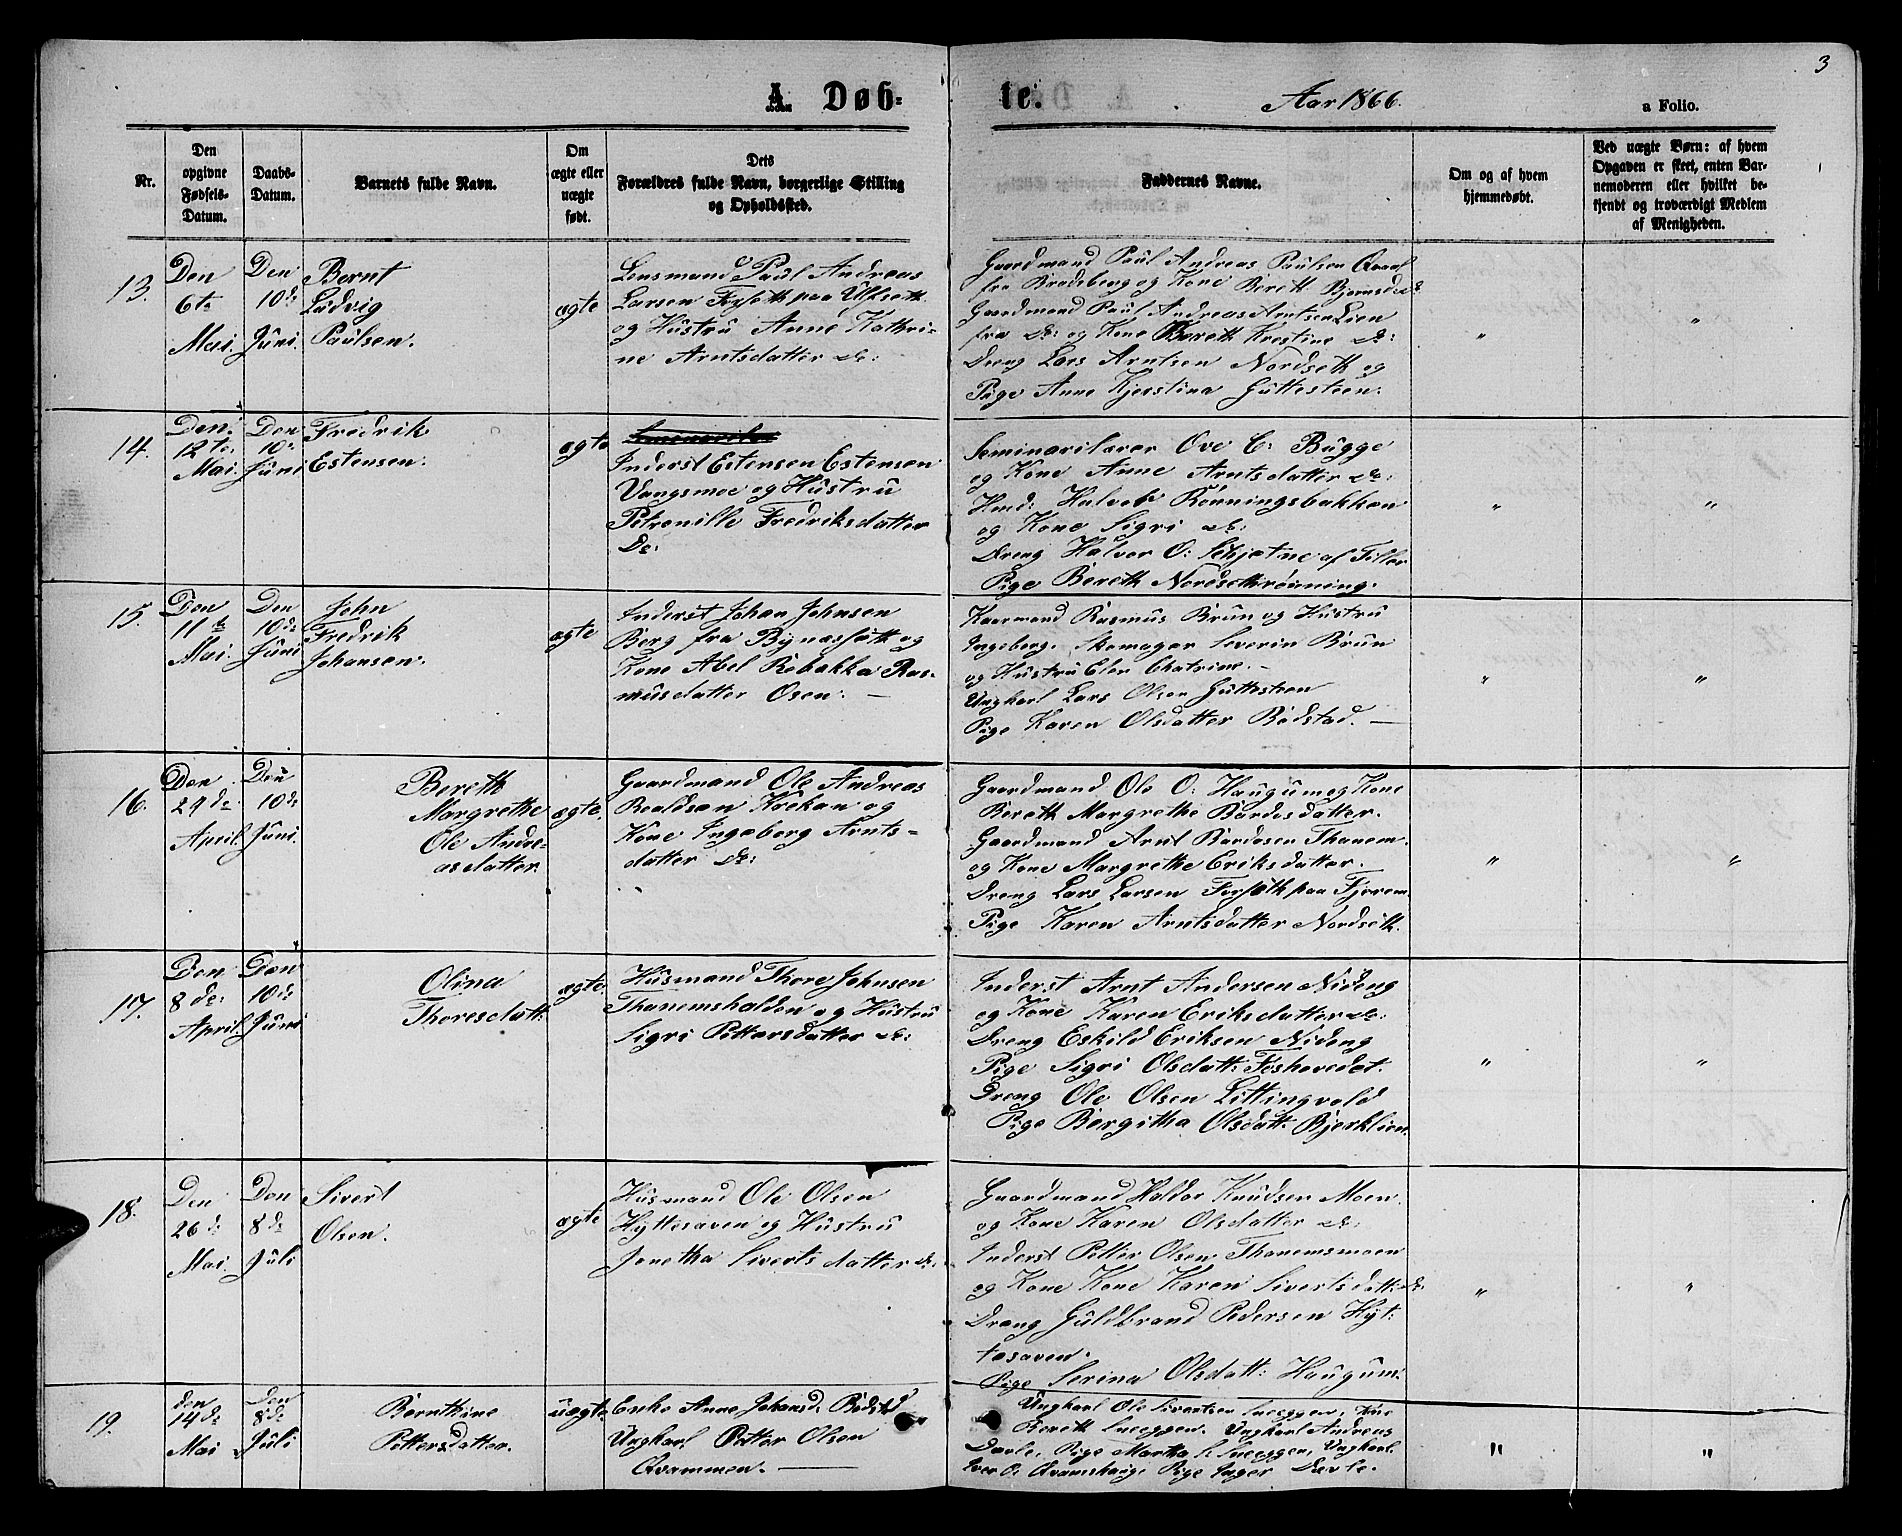 3
A. Døb-
te.
Aar 1866.
a Folio.
Nr.
Den opgivne Fødsels-Datum.
Daabs-Datum.
Barnets fulde Navn.
Om ægte eller uægte født.
Dets Forældres fulde Navn, borgerlige Stilling og Opholdssted.
Faddernes Navne.
Om og af hvem hjemmedøbt.
Ved uægte Børn: af hvem Opgaven er skeet, enten Barnemoderen eller hvilket bekjendt og troværdigt Medlem af Menigheden.
13.
Den 6te Mai.
Den 10de Juni.
Bernt
Ludvig
Paulsen.
ægte
Lensmand Paul Andreas
Larsen Forseth paa Ulfseth
og Hustru Anne Kathri-
ne Arntsdatter De:
Gaardmand Paul Andreas Paulsen
fra Bredeberg og Kone Bereth Bjørnsd. De
Gaardmand Paul Andreas Arntsen Lien
fra De: og Kone Bereth Kirstine De:
Dreng Lars Arntsen Nordseth og
Pige Anne Kjerstina Guttesteen.
"
"
14.
Den 12te Mai.
Den 10de Juni
Fredrik
Estensen.
ægte
Inderst Estensen Estensen
Vangsmoe og Hustru
Petronille Fredriksdatter
De:
Seminarilærer Ove C: Bugge
og Kone Anne Arntsdatter De:
Hmd: Halvor Rønningsbakken
og Kone Sigri De:
Dreng Halvor O: Schjetne af Tiller
Pige Bereth Nordsethrønning.
"
"
15.
Den 11te Mai.
Den 10de Juni
John
Fredrik
Johansen.
ægte
Inderst Johan Johnsen
Berg fra Bynæsset og
Kone Abel Rebakka Ras-
musdatter Osen: —
Kaarmand Rasmus Brun og Hustru
Ingeborg. Skomager Severin Brun
og Hustru Elen Chatrine. -
Ungkarl Lars Olsen Guttesteen
Pige Karen Olsdatter Bodstad. —
"
"
16.
Den 27de April.
Den 10de Juni.
Bereth
Margrethe
Ole Andre-
asdatter.
ægte.
Gaardmand Ole Andreas
Roaldsen Krekan og
Kone Ingeborg Arnts-
datter De:
Gaardmand Ole O: Haugum og Kone
Bereth Margrethe Bardosdatter.
Gaardmand Arnt Bardosen Thanem.
og Kone Margrethe Eriksdatter.
Dreng Lars Larsen Forseth paa Fjerem
Pige Karen Arntsdatter Nordseth.
"
"
17.
Den 8de: April.
Den 10de Juni
Olina
Thoresdatt:
ægte.
Husmand Thore Johnsen
Thanemshalden og Hustru
Sigri Pettersdatter De:
Inderst Arnt Andersen Nideng
og Kone Karen Eriksdatter De:
Dreng Eskild Eriksen Nideng
Pige Sigri Olsdatt: Foshovedet.
Dreng Ole Olsen Littingvold
Pige Bergitha Olsdatt. Bjerklien.
"
"
18.
Den 26de Mai.
Den 8de Juli
Sivert
Olsen.
ægte
Husmand Ole Olsen
Hyttesaven og Hustru
Jonetha Sivertsdatter De.
Gaardmand Haldor Knudsen Moen.
og Kone Karen Olsdatter De:
Inderst Petter Olsen Thanemsmoen
og Kone Kone Karen Sivertsdatt: De:
Dreng Guldbrand Pedersen Hyt:
tesaven.
Pige Serina Olsdatt: Haugum
"
"
19.
den 14de Mai
den 8de Juli
Bernthine
Pettersdatter.
uægte
Enke Anne Johansd. Bodstd
Ungkarl Petter Olsen
Qvammen. —
Ungkarl Ole Sivertsen Sneeggen, Pige
Bereth Sneeggen. Ungkarl Andreas
Davle, Pige Martha S: Sneeggen, Ungkarl
Iver O. Qvamshaug, Pige Inger Davle.
"
"